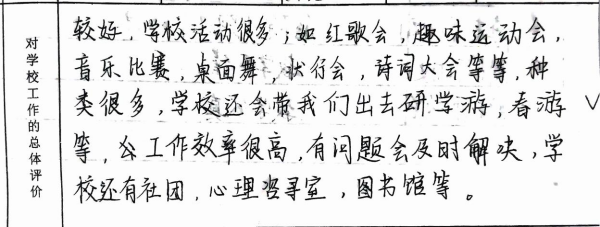 对学校工作的总体评价
较好，学校活动很多；如红歌会，趣味运动会，
音乐比赛，桌面舞，状仔会，诗词大会等等，种
类很多，学校还会带我们出去研学游，春游 ✓
等，公工作效率很高，有问题会及时解决，学
校还有社团，心理咨寻室，图书馆等。